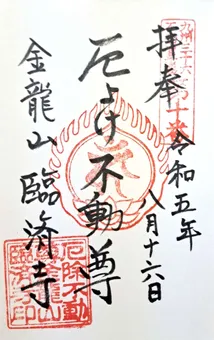 奉拝
令和五年
八月十六日
厄よけ不動尊
金龍山 臨済寺